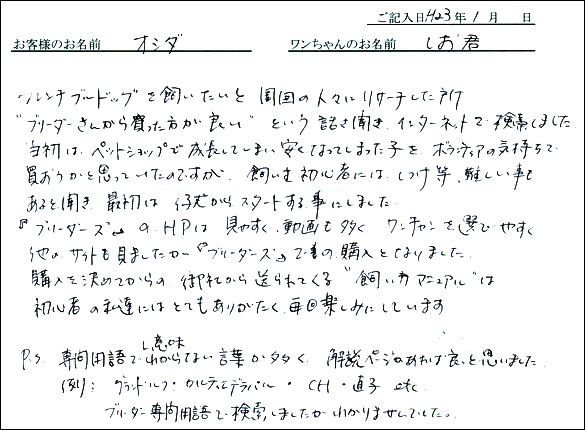 ご記入日 H23年 1月 日
お客様のお名前 オシダ ワンちゃんのお名前 しお君
フレンチブルドッグを飼いたいと周囲の人々にリサーチした所
"ブリーダーさんから買った方が良い"という話を聞き、インターネットで検索しました
当初は、ペットショップで成長してしまい安くなってしまった子を、ボランティアの気持ちで
買おうかと思っていたのですが、飼い主初心者には、しつけ等、難しい事も
あると聞き、最初は仔犬からスタートする事にしました
『ブリーダーズ』のHPは見やすく、動画も多く、ワンチャンを選びやすく
他のサイトも見ましたが『ブリーダーズ』での購入となりました。
購入を決めてからの、御社から送られてくる"飼い方マニュアル"は
初心者の私達にはとてもありがたく、毎回楽しみにしています
P.S. 専門用語で意味わからない言葉が多く、解説ページがあれば良いと思いました
例: グランドルフ・カルティエデラバル・CH・直子 etc
ブリーダー専門用語で検索しましたがわかりませんでした。